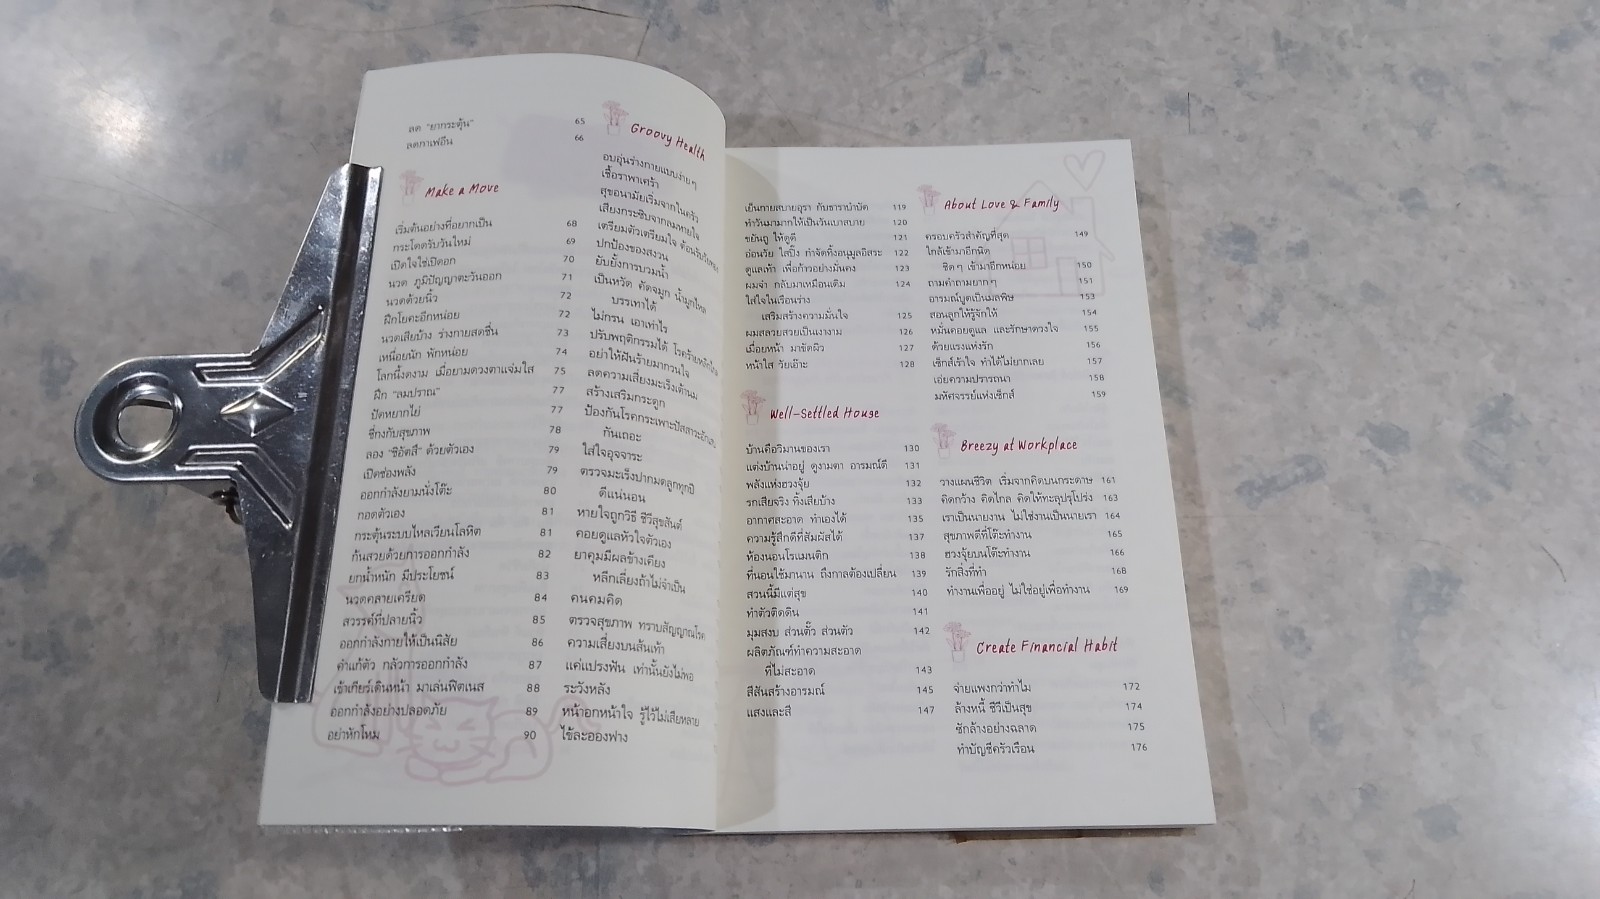 ลด “ยากระตุ้น" 65
ลดกาเฟอีน 66
Make a Move
เริ่มต้นอย่างที่อยากเป็น 68
กระโดดรับวันใหม่ 69
เปิดใจใช่เปิดอก 70
นวด ภูมิปัญญาตะวันออก 71
นวดด้วยนิ้ว 72
ฝึกโยคะอีกหน่อย 72
นวดเสียบ้าง ร่างกายสดชื่น 73
เหนื่อยนัก พักหน่อย 74
โลกนี้งดงาม เมื่อยามดวงตาแจ่มใส 75
ฝึก “ลมปราณ" 77
ปัดหยากไย่ 77
ชี่กงกับสุขภาพ 78
ลอง “ชิอัตสึ" ด้วยตัวเอง 79
เปิดช่องพลัง 79
ออกกำลังยามนั่งโต๊ะ 80
กอดตัวเอง 81
กระตุ้นระบบไหลเวียนโลหิต 81
ก้นสวยด้วยการออกกำลัง 82
ยกน้ำหนัก มีประโยชน์ 83
นวดคลายเครียด 84
สวรรค์ที่ปลายนิ้ว 85
ออกกำลังกายให้เป็นนิสัย 86
คำแก้ตัว กลัวการออกกำลัง 87
เข้าเกียร์เดินหน้า มาเล่นฟิตเนส 88
ออกกำลังอย่างปลอดภัย 89
อย่าหักโหม 90
Groovy Health
อบอุ่นร่างกายแบบง่ายๆ
เชื้อราพาเศร้า
สุขอนามัยเริ่มจากในครัว
เสียงกระซิบจากลมหายใจ
เตรียมตัวเตรียมใจ ต้อนรับวัน
ปกป้องของสงวน
ยับยั้งการบวมน้ำ
เป็นหวัด คัดจมูก น้ำมูกไหล
บรรเทาได้
ไม่กรน เอาเท่าไร
ปรับพฤติกรรมได้ โรคร้าย
อย่าให้ฝันร้ายมากวนใจ
ลดความเสี่ยงมะเร็งเต้านม
สร้างเสริมกระดูก
ป้องกันโรคกระเพาะปัสสาวะอักเสบ
กันเถอะ
ใส่ใจอุจจาระ
ตรวจมะเร็งปากมดลูกทุกปี
ดีแน่นอน
หายใจถูกวิธี ชีวีสุขสันต์
คอยดูแลหัวใจตัวเอง
ยาคุมมีผลข้างเคียง
หลีกเลี่ยงถ้าไม่จำเป็น
คนคมคิด
ตรวจสุขภาพ ทราบสัญญาณโรค
ความเสี่ยงบนส้นเท้า
แค่แปรงฟัน เท่านั้นยังไม่พอ
ระวังหลัง
หน้าอกหน้าใจ รู้ไว้ไม่เสียหลาย
ไข้ละอองฟาง
เย็นกายสบายอุรา กับธาราบำบัด 119
ทำวันมามากให้เป็นวันเบาสบาย 120
ขยันถู ให้ดูดี 121
อ่อนวัย ใสปิ๊ง กำจัดทิ้งอนุมูลอิสระ 122
ดูแลเท้า เพื่อก้าวอย่างมั่นคง 123
ผมจ๋า กลับมาเหมือนเดิม 124
ใส่ใจในเรือนร่าง
เสริมสร้างความมั่นใจ 125
ผมสลวยสวยเป็นเงางาม 126
เมื่อยหน้า มาขัดผิว 127
หน้าใส วัยเอ๊าะ 128
Well-Settled House
บ้านคือวิมานของเรา 130
แต่งบ้านน่าอยู่ ดูงามตา อารมณ์ดี 131
พลังแห่งฮวงจุ้ย 132
รกเสียจริง ทิ้งเสียบ้าง 133
อากาศสะอาด ทำเองได้ 135
ความรู้สึกดีที่สัมผัสได้ 137
ห้องนอนโรแมนติก 138
ที่นอนใช้มานาน ถึงกาลต้องเปลี่ยน 139
สวนนี้มีแต่สุข 140
ทำตัวติดดิน 141
มุมสงบ ส่วนตั๊ว ส่วนตัว 142
ผลิตภัณฑ์ทำความสะอาด
ที่ไม่สะอาด 143
สีสันสร้างอารมณ์ 145
แสงและสี 147
About Love & Family
ครอบครัวสำคัญที่สุด 149
ใกล้เข้ามาอีกนิด
ชิดๆ เข้ามาอีกหน่อย 150
ถามคำถามยากๆ 151
อารมณ์บูดเป็นมลพิษ 153
สอนลูกให้รู้จักให้ 154
หมั่นคอยดูแล และรักษาดวงใจ 155
ด้วยแรงแห่งรัก 156
เซ็กส์เร้าใจ ทำได้ไม่ยากเลย 157
เอ่ยความปรารถนา 158
มหัศจรรย์แห่งเซ็กส์ 159
Breezy at Workplace
วางแผนชีวิต เริ่มจากคิดบนกระดาษ 161
คิดกว้าง คิดไกล คิดให้ทะลุปรุโปร่ง 163
เราเป็นนายงาน ไม่ใช่งานเป็นนายเรา 164
สุขภาพดีที่โต๊ะทำงาน 165
ฮวงจุ้ยบนโต๊ะทำงาน 166
รักสิ่งที่ทำ 168
ทำงานเพื่ออยู่ ไม่ใช่อยู่เพื่อทำงาน 169
Create Financial Habit
จ่ายแพงกว่าทำไม 172
ล้างหนี้ ชีวีเป็นสุข 174
ซักล้างอย่างฉลาด 175
ทำบัญชีครัวเรือน 176